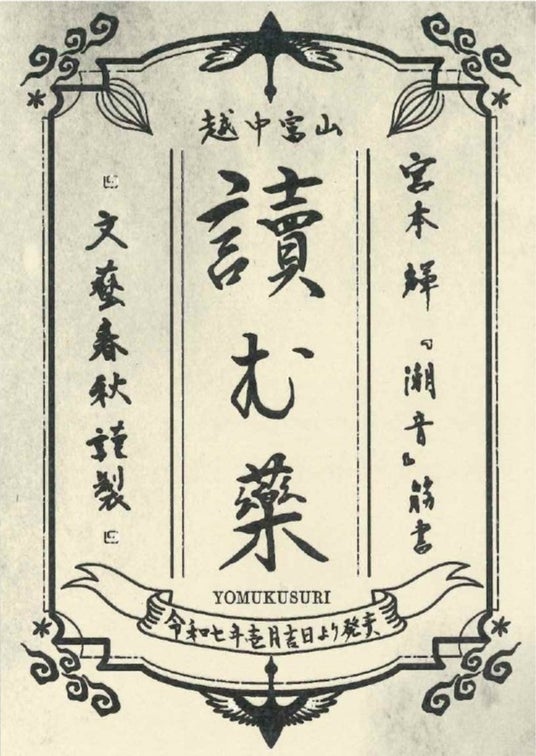 越中富山
宮本輝『潮音』筋書
讀む藥
文藝春秋謹製
YOMUKUSURI
令和七年壱月吉日より発売